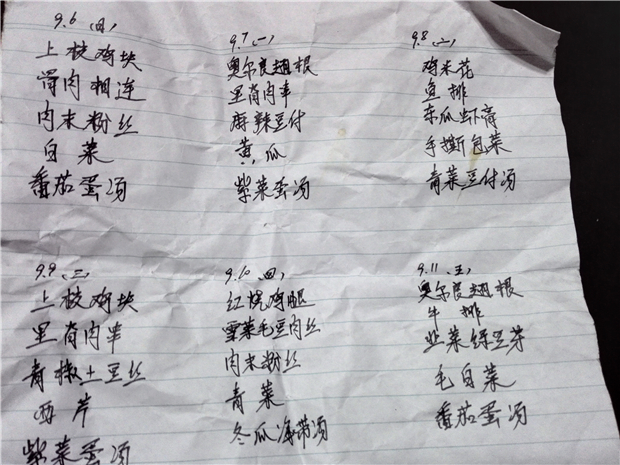 9.6(日)
上校鸡块
骨肉相连
肉末粉丝
白菜
番茄蛋汤
9.7(一)
奥尔良翅根
里脊肉串
麻辣豆付
黄瓜
紫菜蛋汤
9.8(二)
鸡米花
鱼排
冬瓜虾高
手撕包菜
青菜豆付汤
9.9(三)
上校鸡块
里脊肉串
青椒土豆丝
西芹
紫菜蛋汤
9.10(四)
红烧鸡腿
雪菜毛豆肉丝
肉末粉丝
青菜
冬瓜海带汤
9.11(五)
奥尔良翅根
牛排
韭菜绿豆芽
毛白菜
番茄蛋汤